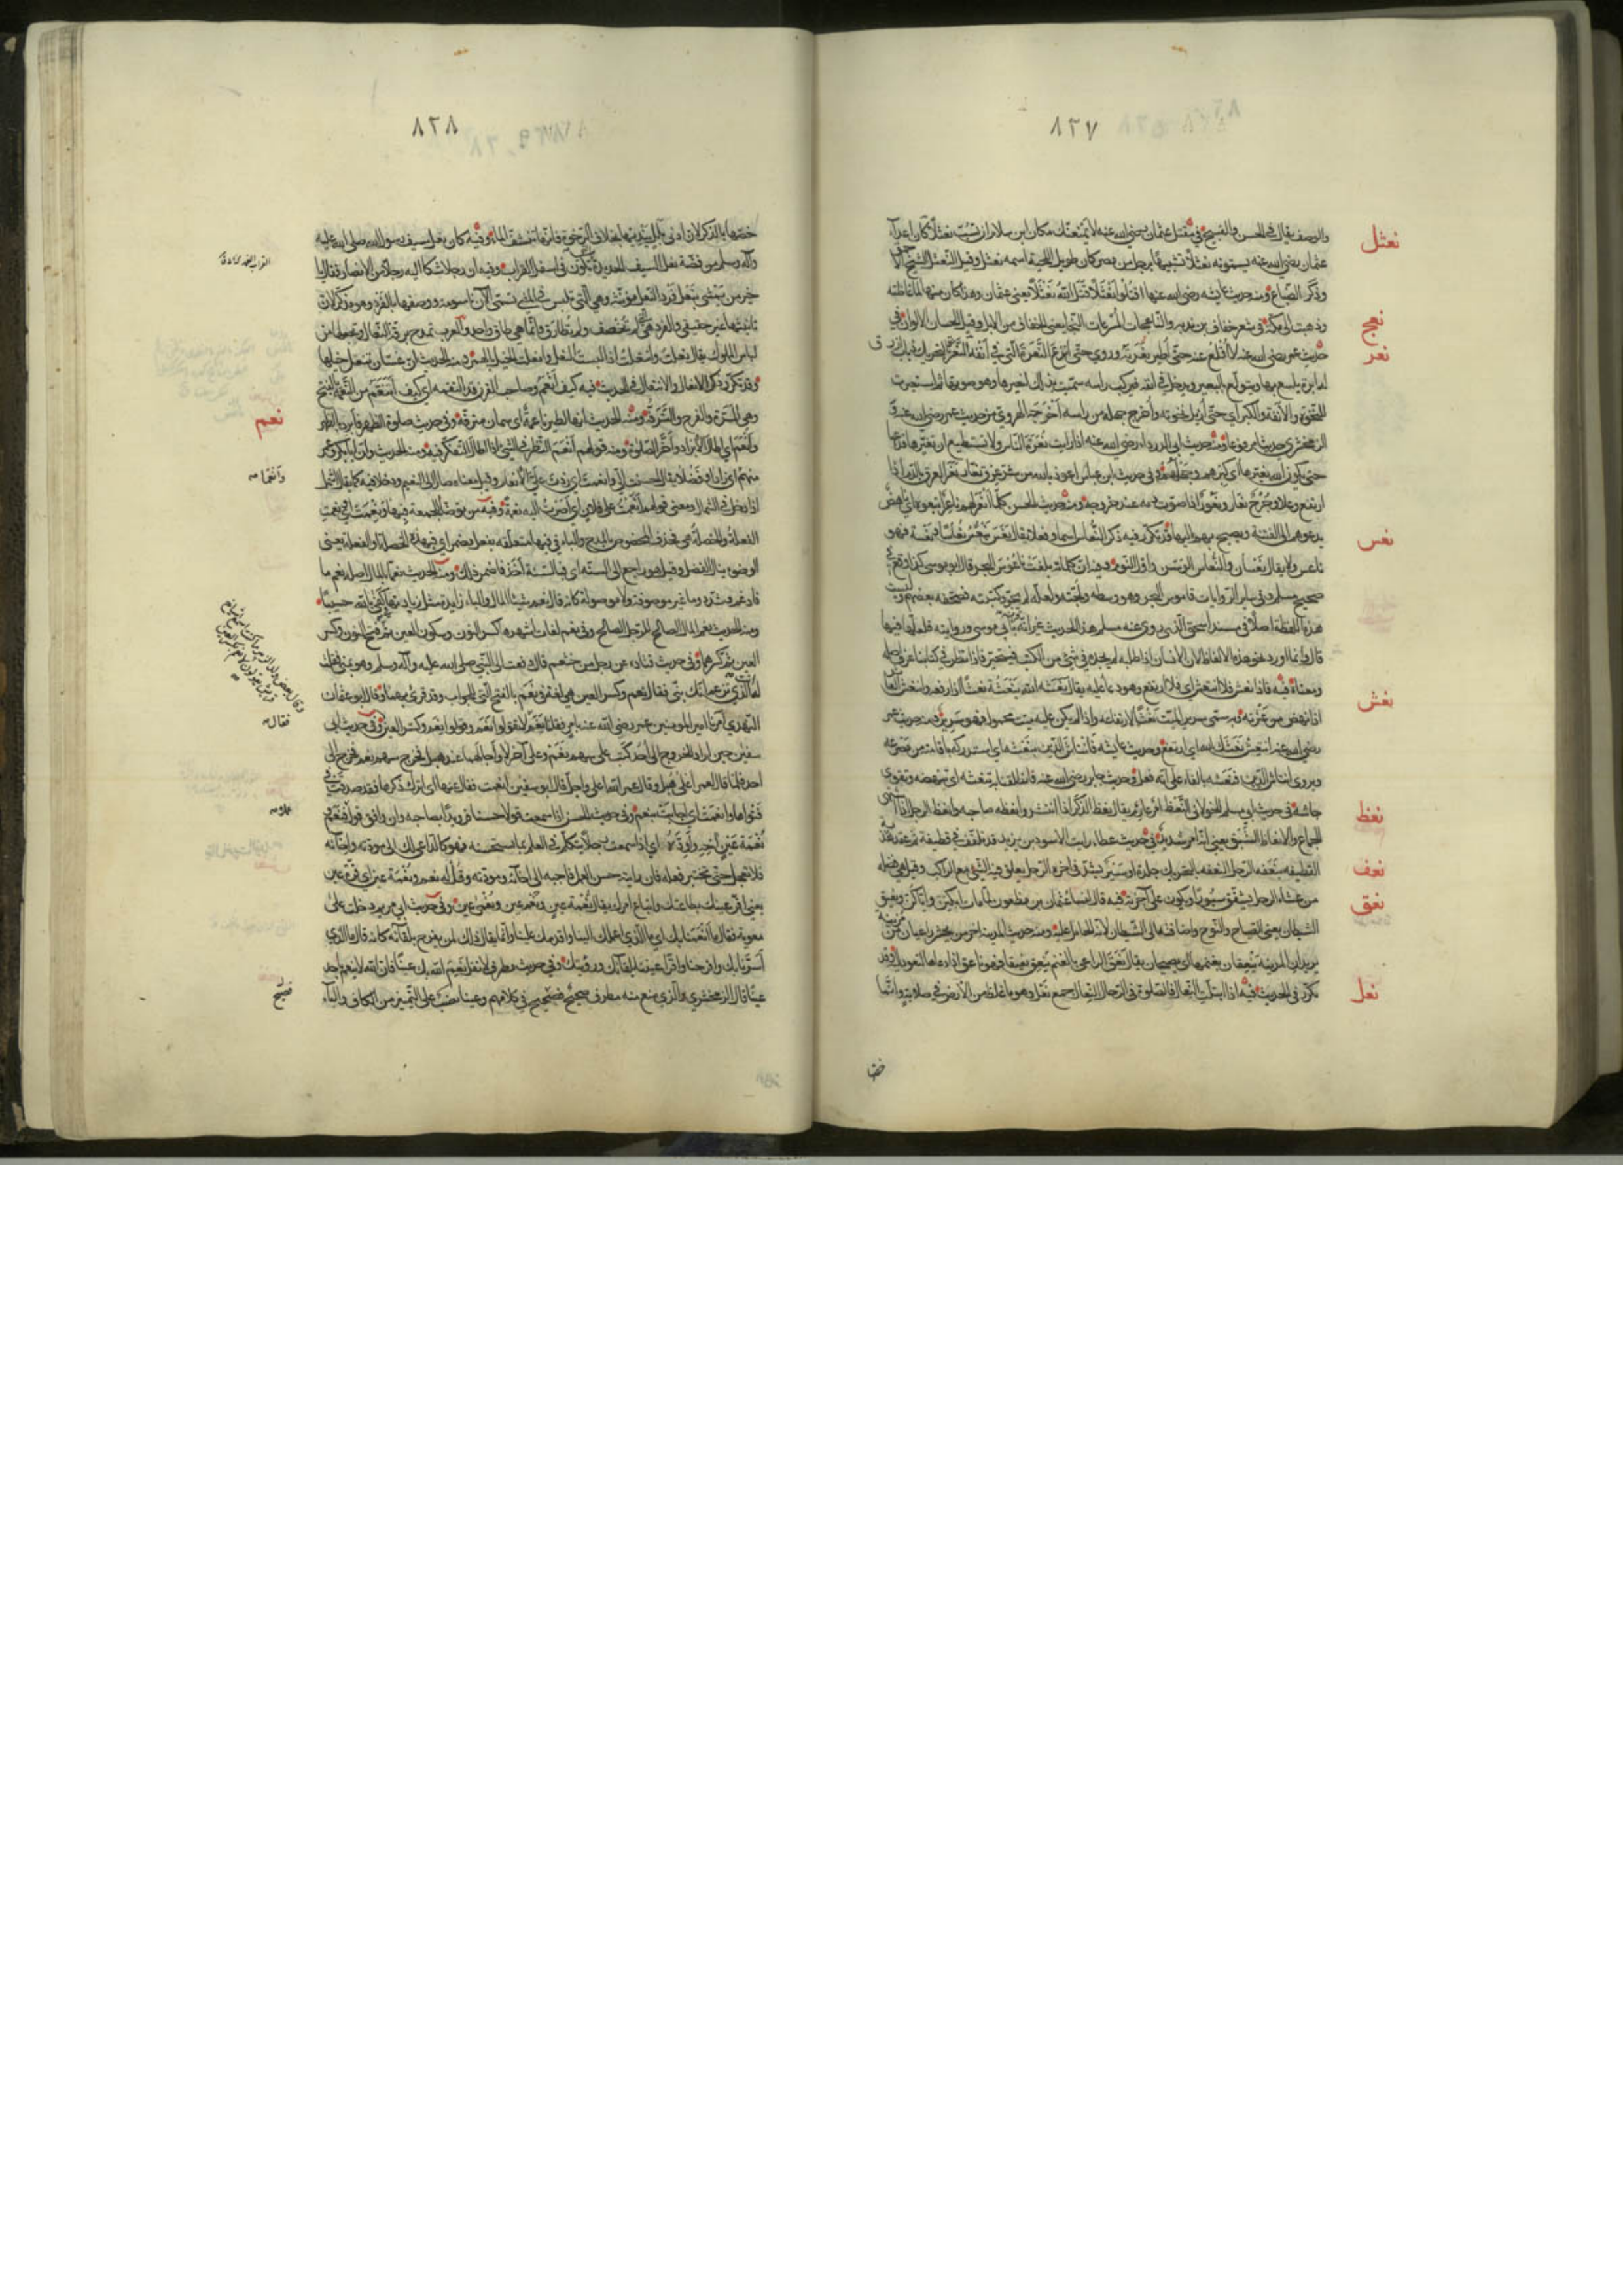 ٨٢٧
نعثل
والوصف يقال في الحسن والقبيح في مقتل عثمان رضي الله عنه لا يمنعنك مكان ابن سلام ان تسب نعثلا كان اعداء
عثمان رضي الله عنه يسمونه نعثلا تشبيها برجل من مصر كان طويل اللحية اسمه نعثل وقيل النعثل الشيخ الاحمق
وذكر الضباع ومنه حديث عايشة رضي الله عنها اقتلوا نعثلا قتل الله نعثلا يعني عثمان وهذا كان منها لما غاظته
نعج
وذهبت الى مكة في شعر خفاف بن ندبه والناعجات المسرعات النجا يعني الخفاف من الابل وقيل الحسان الالوان في
نعر
حديث عمر رضي الله عنه لا اقلع عنه حتى اطير نعرته وروي حتى انزع النعرة التي في انفه النعر بالتحريك ذباب ازرق
له ابرة يلسع بها ويتولع بالبعير ويدخل في انفه فيركب راسه سميت بذلك لنعيرها وهو صوتها ثم استعيرت
للنخوة والانفة والكبر اي حتى ازيل نخوته واخرج جهله من راسه اخرجه الهروي من حديث عمر رضي الله عنه
الزمخشري حديثا مرفوعا ومنه حديث ابي الدرداء رضي الله عنه اذا رايت نعرة الناس ولا تستطيع ان تغيرها فدعها
حتى يكون الله يغيرها اي كبرهم وجهلهم وفي حديث ابن عباس اعوذ بالله من شر عرق نعار نعر العرق بالدم اذا
ارتفع وعلا وجرح نعار ونعور اذا صوت دمه عند خروجه ومنه حديث الحسن كلما نعر بهم ناعر اتبعوه اي ناهض
نعس
يدعوهم الى الفتنة ويصيح بهم اليها قد تكرر فيه ذكر النعاس اسما وفعلا يقال نعس ينعس نعاسا ونعسة فهو
ناعس ولا يقال نعسان والنعاس الوسن واول النوم وفيه ان كلماته بلغت ناعوس البحر قال ابو موسى كذا وقع في
صحيح مسلم وفي ساير الروايات قاموس البحر وهو وسطه ولجته ولعله لم يجود كتبته فصحفه بعضهم وليست
هذه اللفظة اصلا في مسند اسحق الذي روى عنه مسلم هذا الحديث غير انه قرنه بابي موسى وروايته فلعلها فيها
قال وانما اورد نحو هذه الالفاظ لان الانسان اذا طلبه لم يجده في شئ من الكتب فيتحير فاذا نظر في كتابنا عرف اصله
نعش
ومعناه فيه فاذا تعس فلا انتعش اي فلا ارتفع وهو دعاء عليه يقال نعشه الله ينعشه نعشا اذا رفعه وانتعش العاثر
اذا نهض من عثرته وبه سمي سرير الميت نعشا لارتفاعه واذا لم يكن عليه ميت محمول فهو سرير ومنه حديث عمر
رضي الله عنه انتعش نعشك الله اي ارتفع وحديث عايشة فانتاش الدين بنعشه اي استدركه باقامته من مصرعه
ويروى انتاش الدين فنعشه بالفاء على انه فعل وحديث جابر رضي الله عنه فانطلقنا به ننعشه اي ننهضه ونقوي
نعظ
جاشه في حديث ابي مسلم الخولاني النعظ امر عارم يقال نعظ الذكر اذا انتشر وانعظه صاحبه وانعظ الرجل اذا اشتهى
الجماع والانعاظ الشبق يعني انه امر شديد في حديث عطاء رايت الاسود بن يزيد قد تلفف في قطيفة ثم عقد هدبة
نعف
القطيفة بنعفة الرحل النعفة بالتحريك جلدة او سير يشد في اخرة الرحل يعلق فيه الشئ مع الراكب وقيل هي فضلة
نعق
من غشاء الرحل يشقق سيورا ويكون على آخرته فيه قال لنساء عثمان بن مظعون لما مات ابكين واياكن ونعيق
الشيطان يعني الصياح والنوح واضافه الى الشيطان لانه الحامل عليه ومنه حديث المدينة اخر من يحشر راعيان من مزينة
يريدان المدينة ينعقان بغنمهما اي يصيحان يقال نعق الراعي بالغنم ينعق نعيقا فهو ناعق اذا دعاها لتعود اليه وقد
نعل
تكرر في الحديث فيه اذا ابتلت النعال فالصلوة في الرحال النعال جمع نعل وهو ما غلظ من الارض في صلابة وانما
خصها
٨٢٨
خصها بالذكر لان ادنى بلل ينديها بخلاف الرخوة فانها تنشف الماء وفيه كان نعل سيف رسول الله صلى الله عليه
وآله وسلم من فضة نعل السيف الحديدة التي تكون في اسفل القراب وفيه ان رجلا شكا اليه رجلا من الانصار فقال يا
خير من يمشي بنعل فرد النعل مؤنثة وهي التي تلبس في المشي تسمى الآن تاسومة ووصفها بالفرد وهو مذكر لان
تانيثها غير حقيقي والفرد هي التي لم تخصف ولم تطارق وانما هي طاق واحد والعرب تمدح برقة النعال وتجعلها من
لباس الملوك يقال نعلت وانتعلت اذا لبست النعل وانعلت الخيل بالهمزة ومنه الحديث ان غسان تنعل خيلها
نعم
وقد تكرر ذكر الانعال والانتعال في الحديث فيه كيف انعم وصاحب القرن قد التقمه اي كيف اتنعم من النعمة بالفتح
وهي المسرة والفرح والترفه ومنه الحديث انها لطير ناعمة اي سمان مترفة وفي حديث صلوة الظهر فابرد بالظهر
وانعم اي اطال الابراد واخر الصلوة ومنه قولهم انعم النظر في الشئ اذا اطال التفكر فيه ومنه الحديث وان ابا بكر وعمر
وانعما صح
منهم اي زادا وفضلا يقال احسنت الي وانعمت اي زدت على الانعام وقيل معناه صارا الى النعيم ودخلا فيه كما يقال اشمل
اذا دخل في الشمال ومعنى قولهم انعمت على فلان اي اصرت اليه نعمة وفيه من توضا للجمعة فبها ونعمت اي ونعمت
الفعلة والخصلة هي فحذف المخصوص بالمدح والباء في فبها متعلقة بفعل مضمر اي فبهذه الخصلة او الفعلة يعني
الوضوء ينال الفضل وقيل هو راجع الى السنة اي فبالسنة اخذ فاضمر ذلك ومنه الحديث نعما بالمال اصله نعم ما
فادغم وشدد وما غير موصوفة ولا موصولة كانه قال نعم شيئا المال والباء زايدة مثل زيادتها في كفى بالله حسيبا
ومنه الحديث نعم المال الصالح للرجل الصالح وفي نعم لغات اشهرها كسر النون وسكون العين ثم فتح النون وكسر
العين ثم كسرهما وفي حديث قتادة عن رجل من خثعم قال دفعت الى النبي صلى الله عليه وآله وسلم وهو بمنى فقلت
له انت الذي تزعم انك نبي فقال نعم وكسر العين هي لغة في نعم بالفتح التي للجواب وقد قرئ بهما وقال ابو عثمان
النهدي امرنا امير المومنين عمر رضي الله عنه بامر فقلنا نعم فقال لا تقولوا نعم وقولوا نعم وكسر العين وفي حديث ابي
فقال صح
سفين حين اراد الخروج الى احد كتب على سهم نعم وعلى آخر لا واجالهما عند هبل فخرج سهم نعم فخرج الى
احد فلما قال لعمر اعل هبل وقال عمر الله اعلى واجل قال ابو سفين انعمت فعال عنها اي اترك ذكرها فقد صدقت في
فتواها وانعمت اي اجابت بنعم وفي حديث الحسن اذا سمعت قولا حسنا فرويدا بصاحبه فان وافق قول عملا فنعم و
عملا صح
نعمة عين آخه واودده اي اذا سمعت رجلا يتكلم في العلم بما تستحسنه فهو كالداعي لك الى مودته واخائه
فلا تعجل حتى تختبر فعله فان رايته حسن العمل فاجبه الى اخائه ومودته وقل له نعم ونعمة عين اي قرة عين
يعني اقر عينك بطاعتك واتباع امرك يقال نعمة عين ونعم عين ونعمى عين وفي حديث ابي مريم دخلت على
معوية فقال ما انعمنا بك اي ما الذي اعملك الينا واقدمك علينا وانما يقال ذلك لمن يفرح بلقائه كانه قال ما الذي
اسرنا بك وافرحنا واقر اعيننا بلقائك ورؤيتك وفي حديث مطرف لا تقل نعم الله بك عينا فان الله لا ينعم باحد
عينا قال الزمخشري والذي منع منه مطرف صحيح فصيح في كلامهم وعينا نصب على التمييز من الكاف والباء